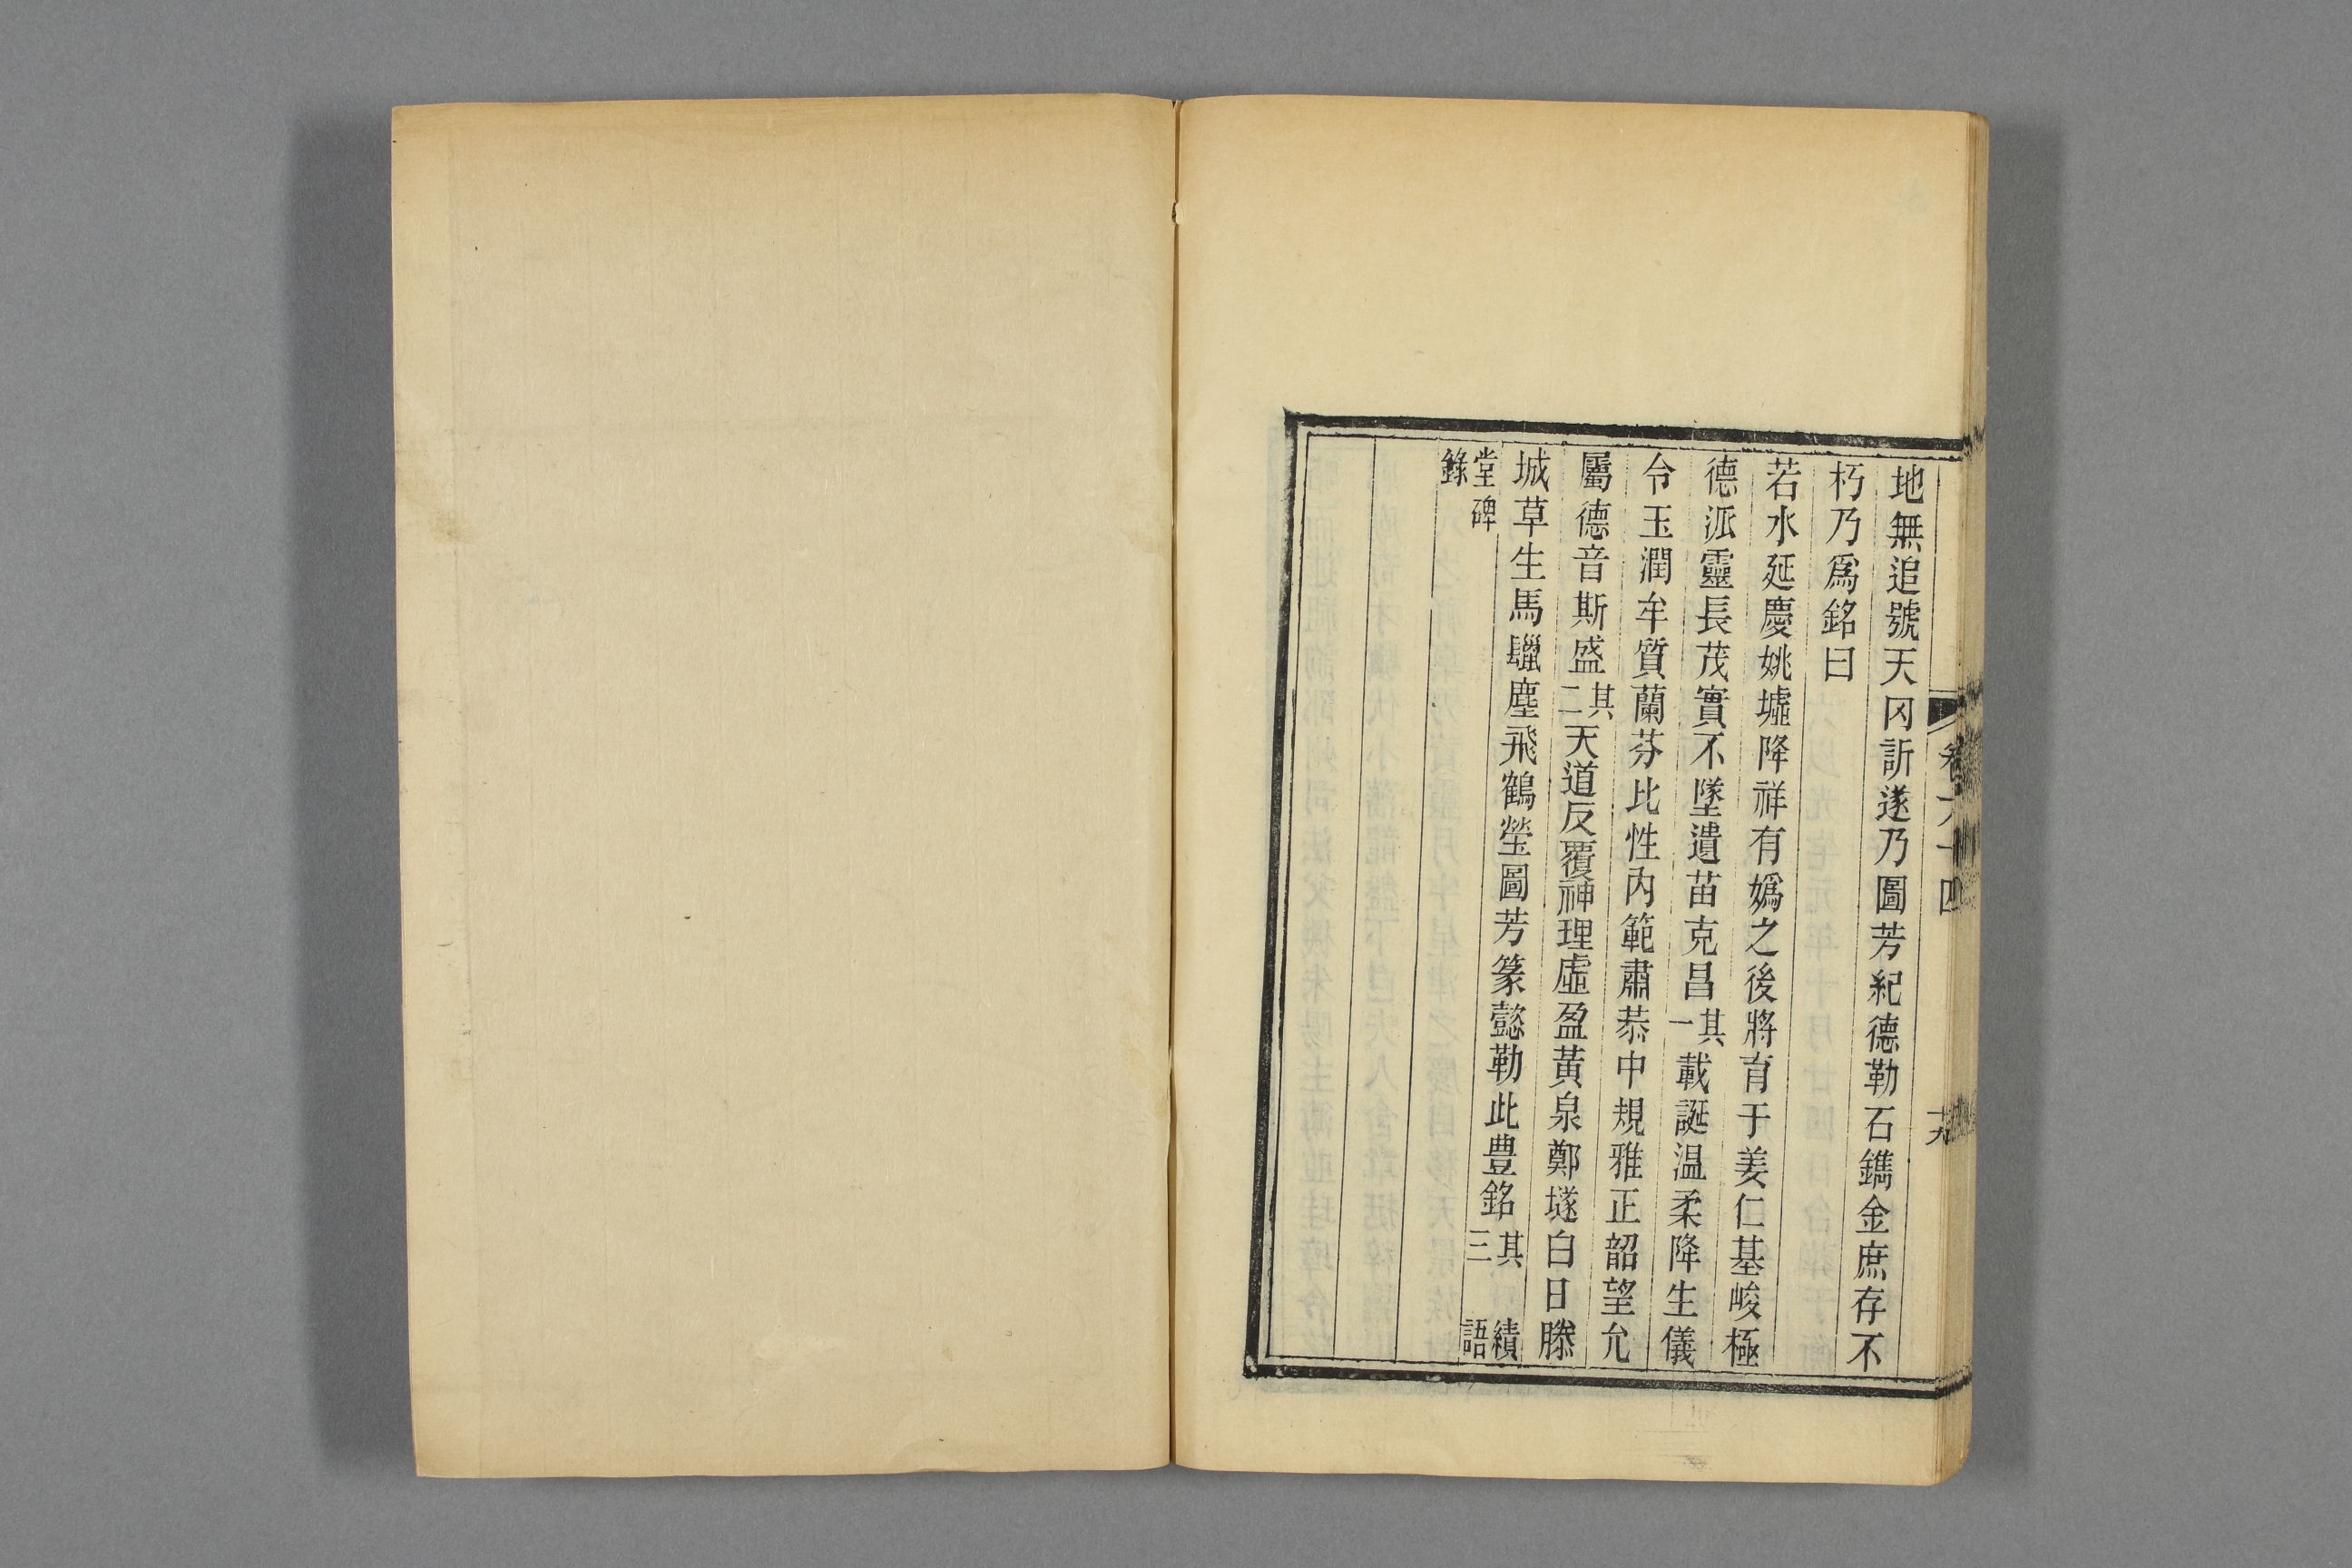 地無追號天冈訢遂乃圖芳紀德勒石鐫金庶存不
朽乃爲銘曰
若水延慶姚墟降祥有嬀之後將育于姜仁基峻極
德派靈長茂實不墜遺苗克昌其一載誕温柔降生儀
令玉潤牟質蘭芬比性内範肅恭中規雅正韶望允
屬德音斯盛其二天道反覆神理虛盈黃泉鄭墜白日滕
城草生馬鬛塵飛鶴塋圖芳篆懿勒此豊銘其三 績語
堂碑錄
卷六十四
十九